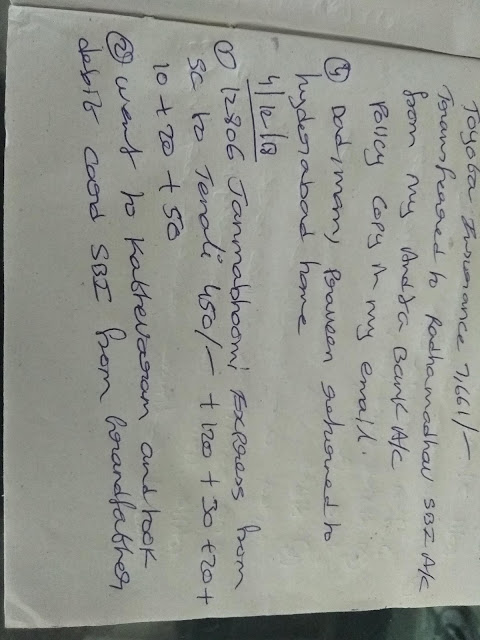 Toyota Insurance 7,661/-
Transferred to Radhamadhav SBI A/c
from my Andra Bank A/c
Policy copy in my email.
④ Dad, mam, Praveen returned to
hyderabad home
4/12/18
① 12806 Janmabhoomi Express from
SC to Tenali 450/- + 120 + 30 + 20 +
10 + 20 + 50
② went to Kathevaram and took
debit card SBI from grandfather,